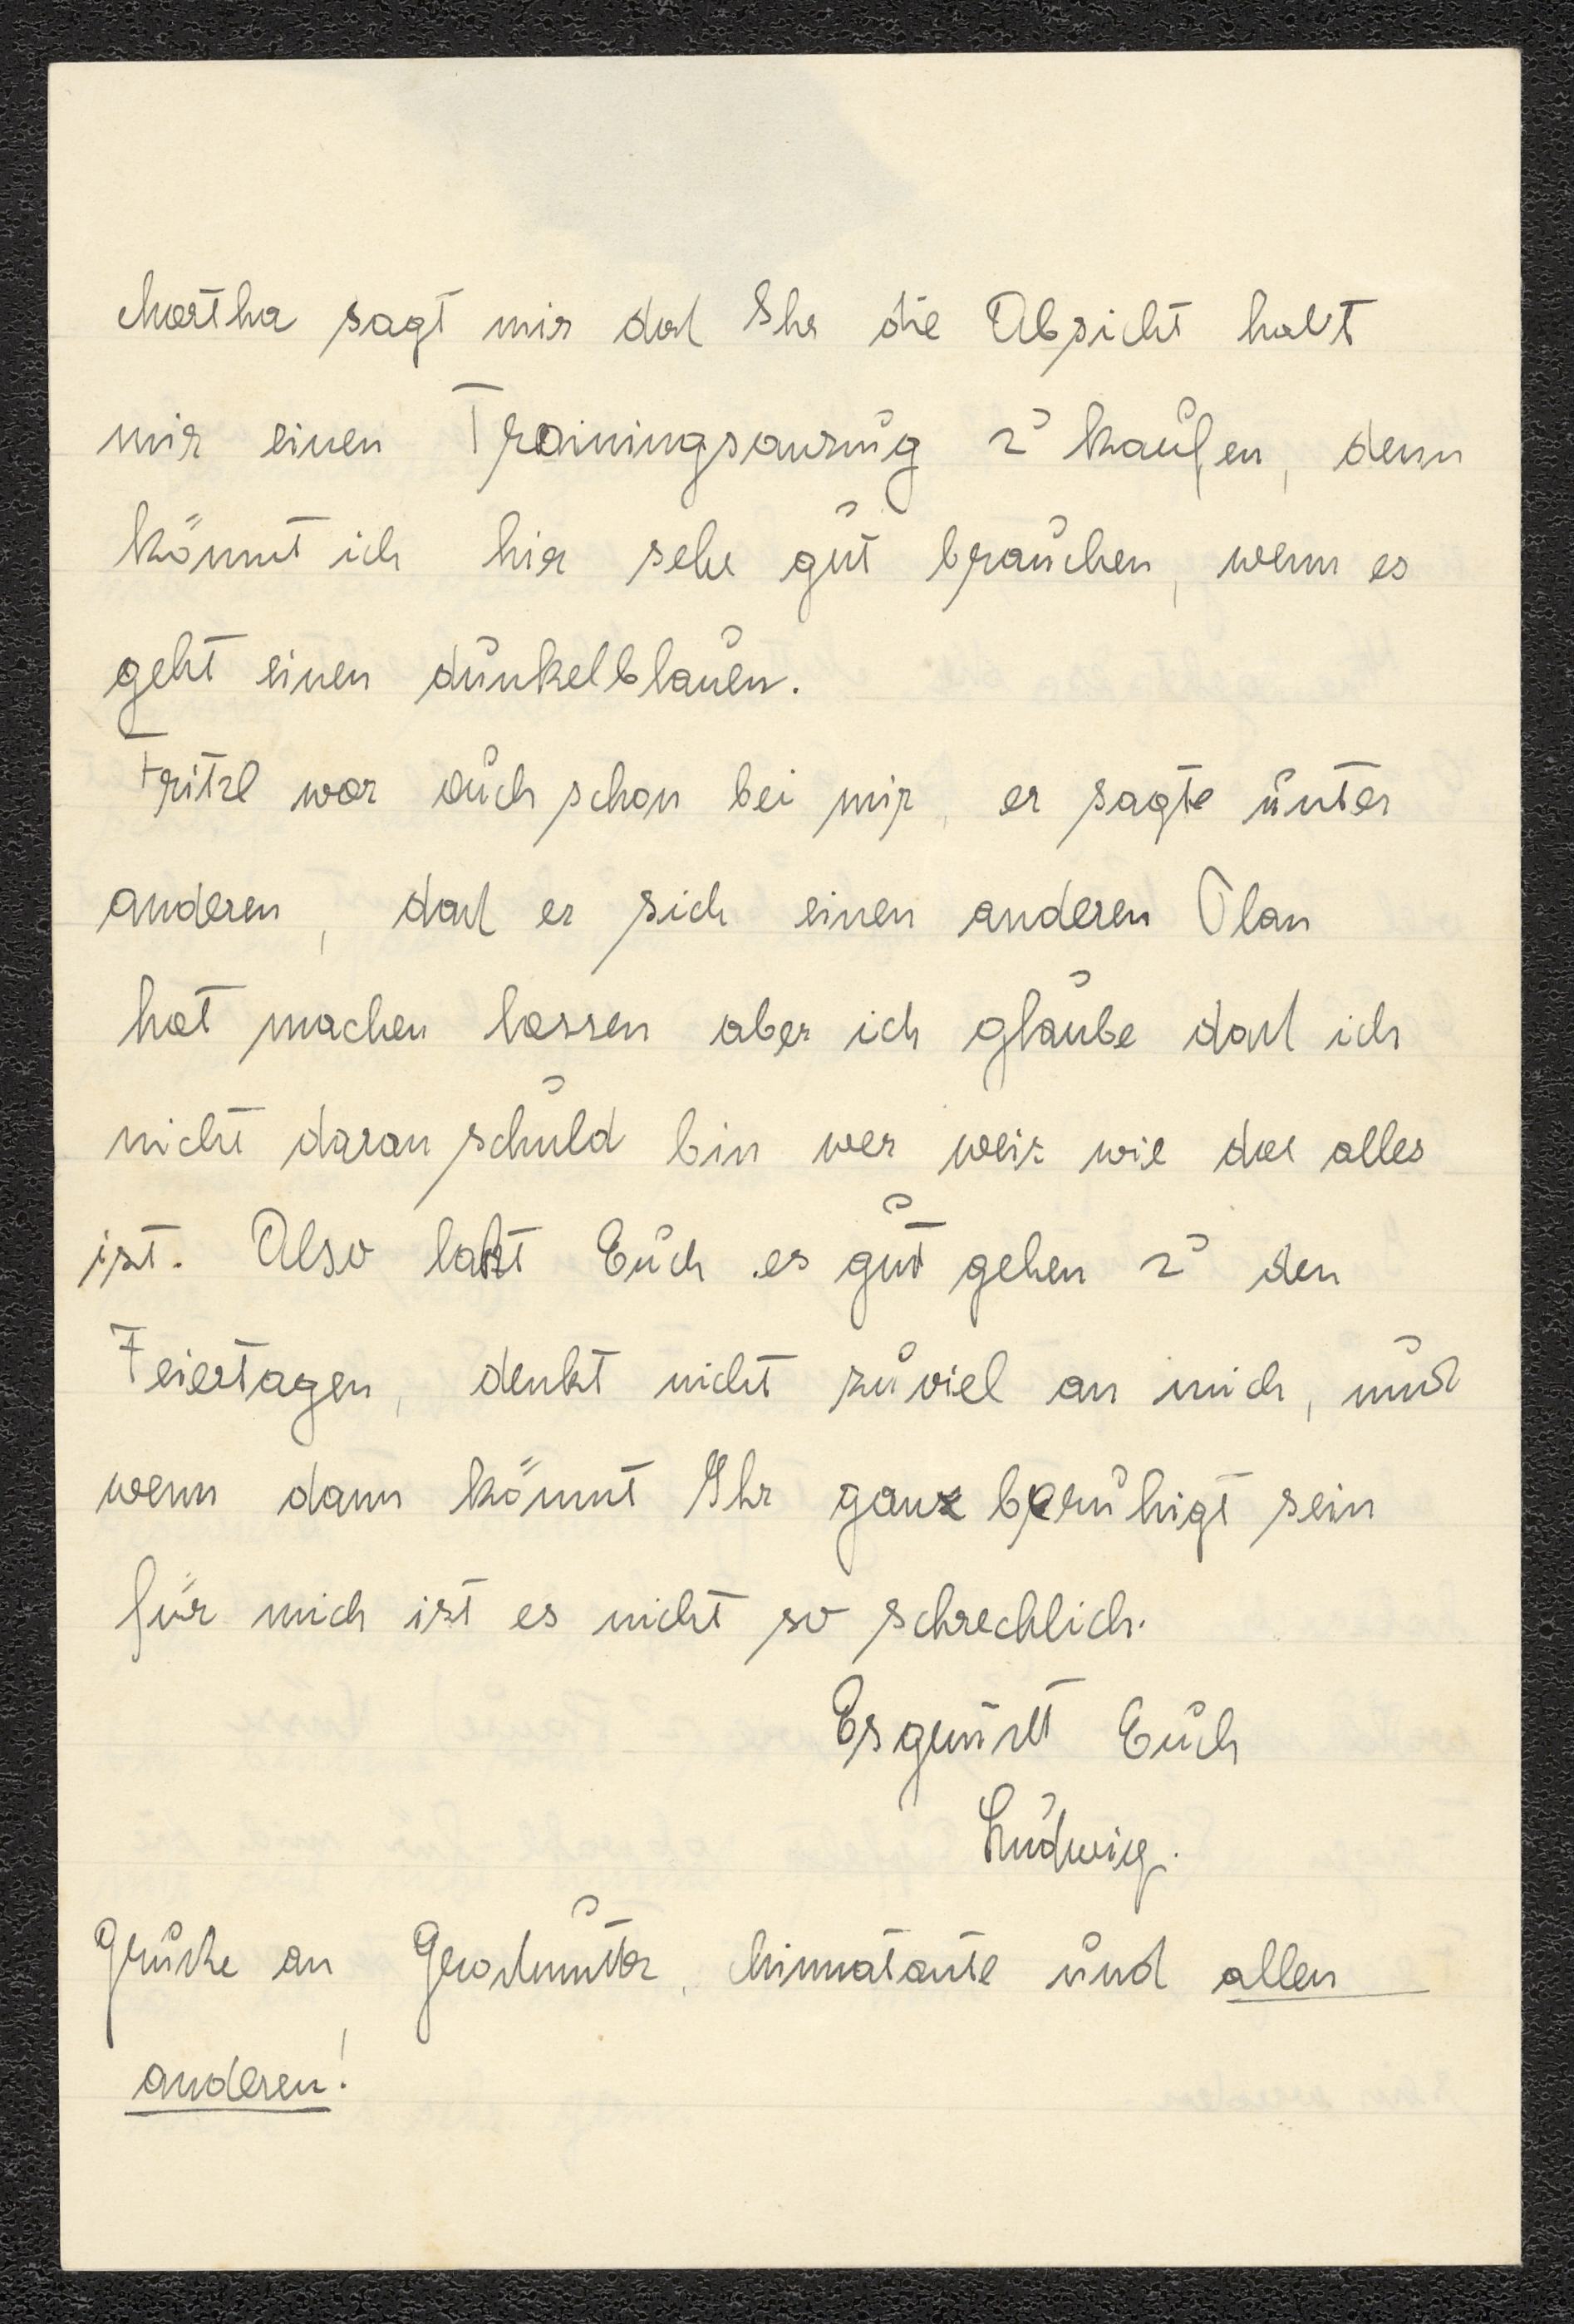 Martha sagt mir daß Ihr die Absicht habt
mir einen Trainingsanzug z' kaufen, denn
könnt ich hir sehr gut brauchen, wenn es
geht einen dunkelblauen.
Fritzl war auch schon bei mir, er sagte unter
anderen, daß er sich einen anderen Plan
hat machen lassen aber ich glaube daß ich
nicht daran schuld bin wer weis wie das alles
ist. Also laßt Euch es gut gehen z' den
Feiertagen, denkt nicht zuviel an mich, und
wenn dann könnt Ihr ganz beruhigt sein
für mich ist es nicht so schrecklich.
Es grüßt Euch
Ludwig.
Grüße an Großmutter, Minnatante und allen
anderen!